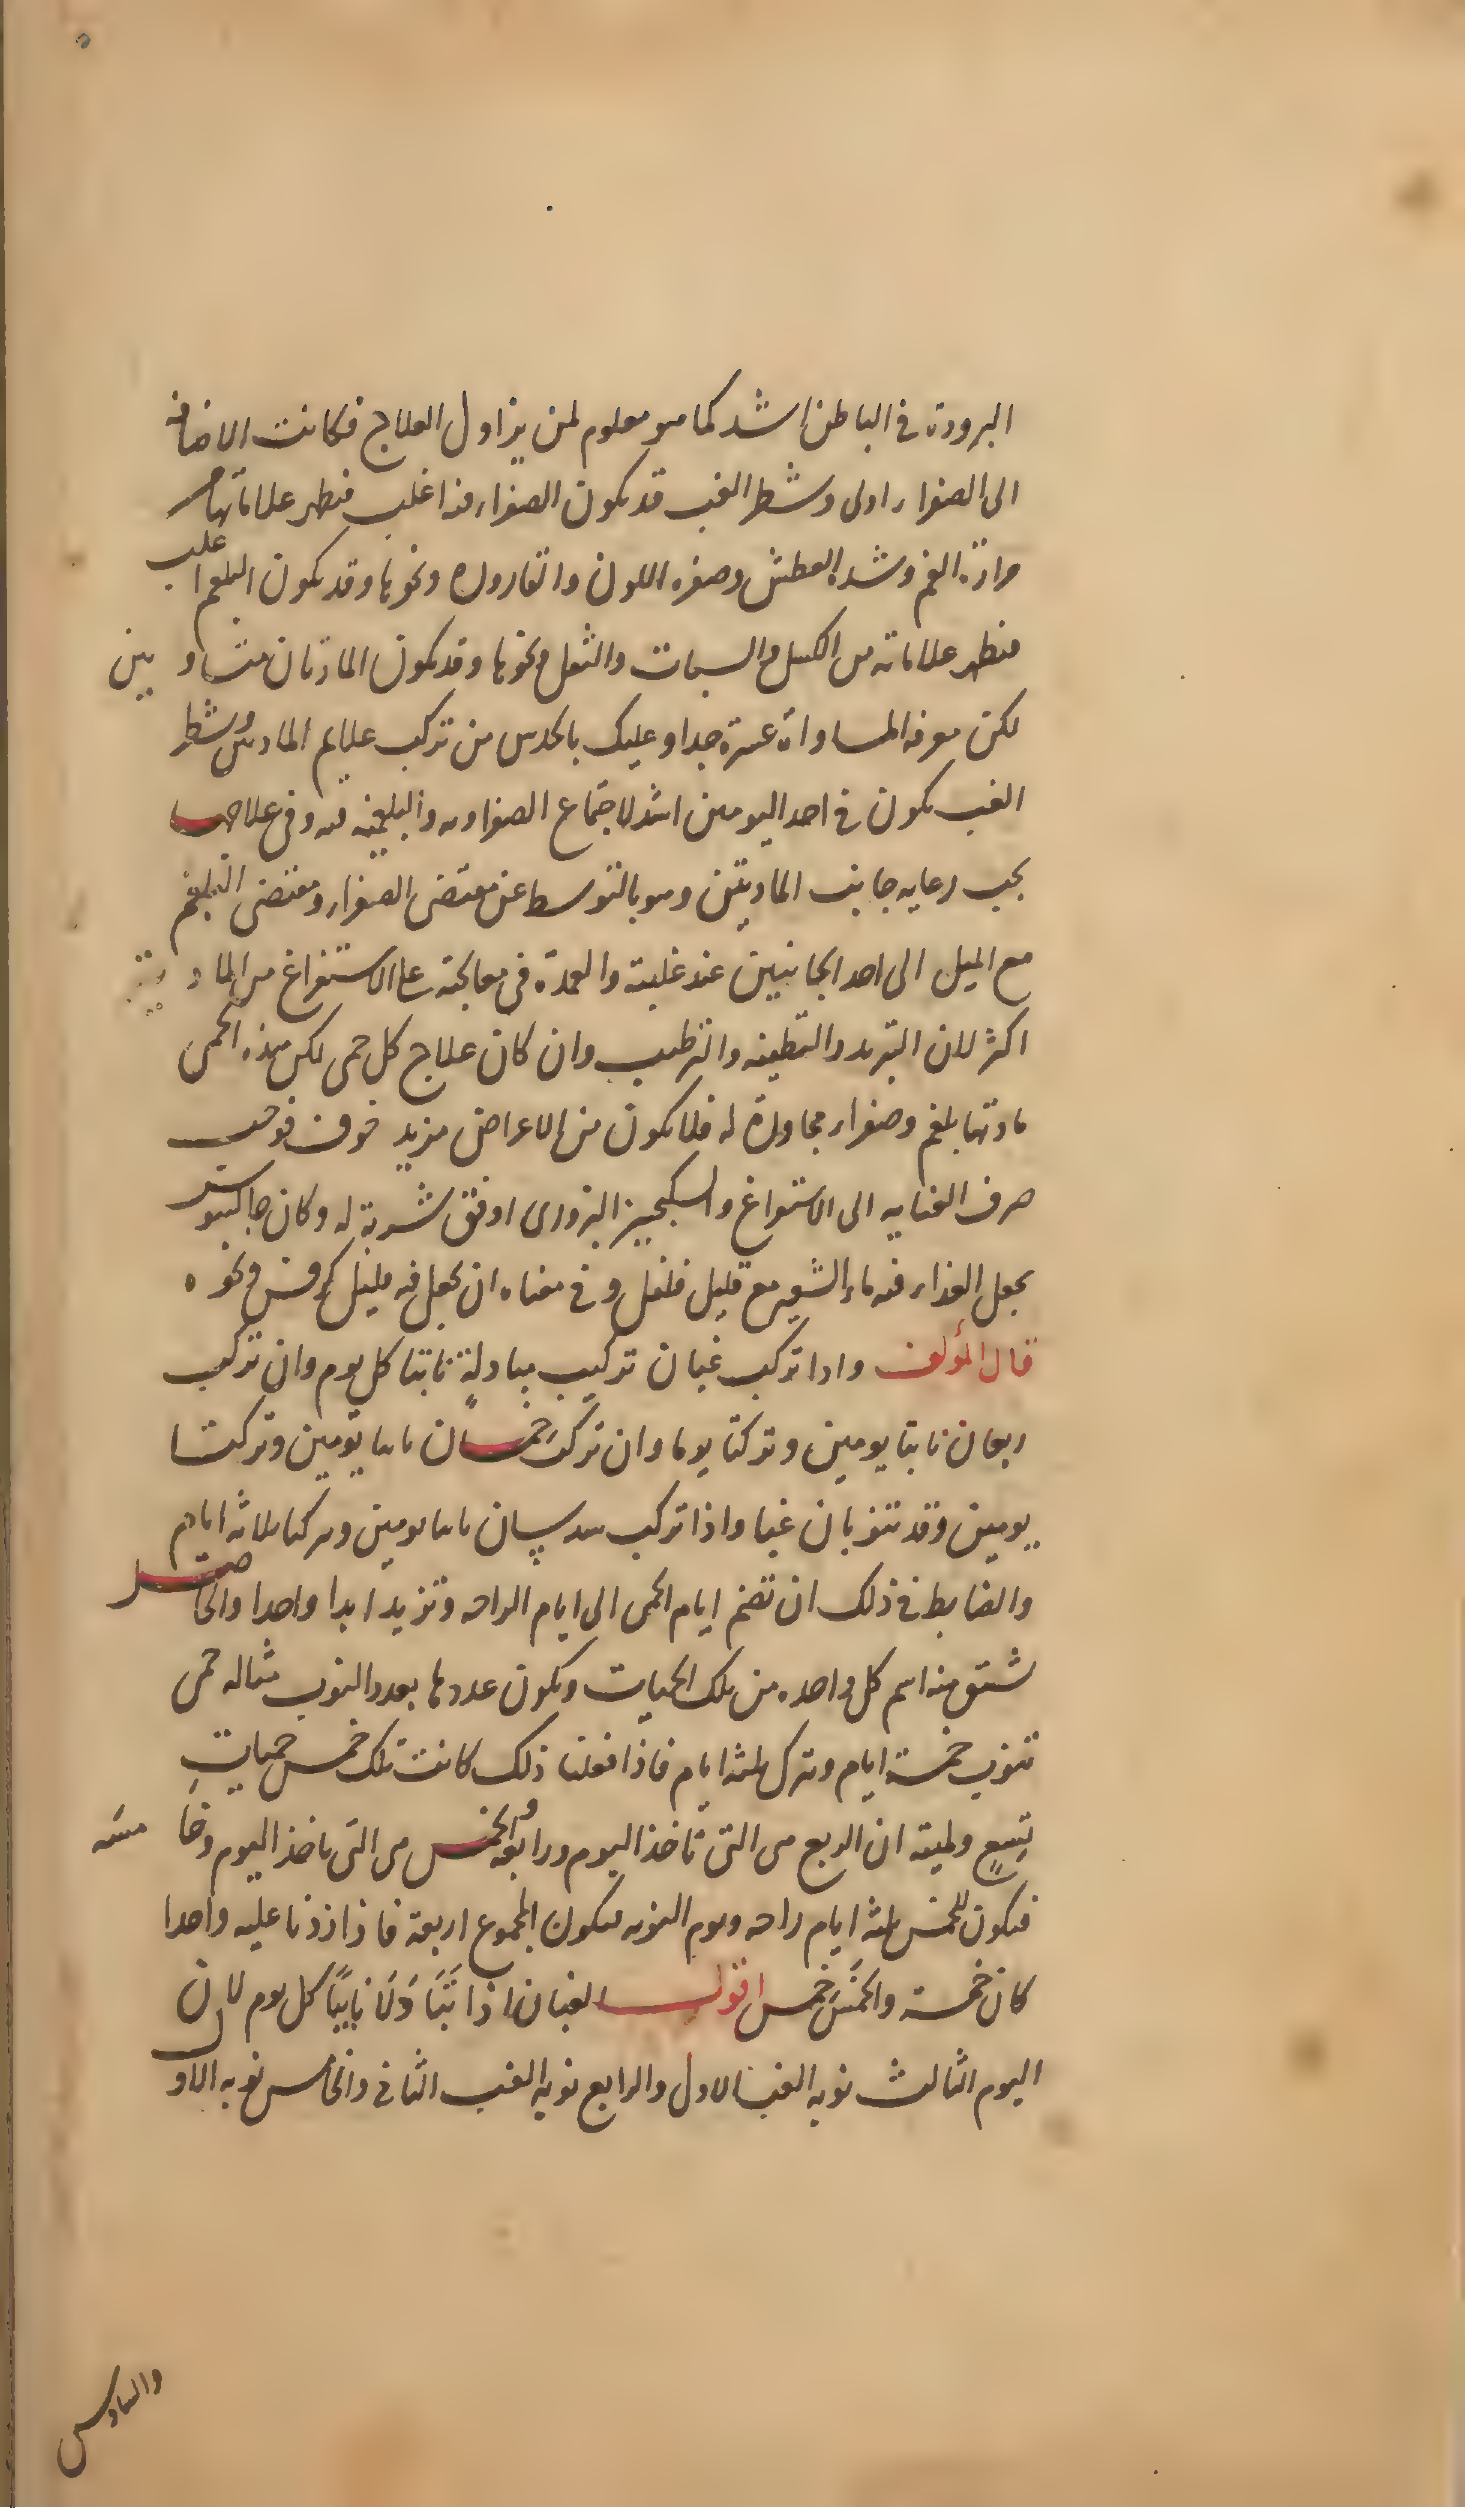 البرودة في الباطن اشد كما هو معلوم لمن يزاول العلاج فكانت الاضافة
الى الصفراء اولى وشطر الغب قد يكون الصفراء فيه اغلب فيظهر علاماتها من
مرارة الفم وشدة العطش وصفرة اللون والقارورة ونحوها وقد يكون البلغم اغلب
فيظهر علاماته من الكسل والسبات والثقل ونحوها وقد يكون المادتان متساويين
لكن معرفة المساواة عسرة جدا وعليك بالحدس من تركب علايم المادتين وشطر
الغب يكون في احد اليومين اشد لاجتماع الصفراوية والبلغمية فيه وفي علاجها
يجب رعاية جانب المادتين وهو بالتوسط عن مقتضى الصفراء ومقتضى البلغم
مع الميل الى احد الجانبين عند غلبته والعمدة في معالجته على الاستفراغ من المادتين
اكثر لان التبريد والتطفية والترطيب وان كان علاج كل حمى لكن هذه الحمى
مادتها بلغم وصفراء مجاورة له فلا يكون من الاعراض مزيد خوف فوجب
صرف العناية الى الاستفراغ والسكنجبين البزورى اوفق شربة له وكان جالينوس
يجعل الغذاء فيه ماء الشعير مع قليل فلفل وفي معناه ان يجعل فيه قليل كرفس ونحوه
قال المؤلف واذا تركب غبان تركيب مبادلة نابتا كل يوم وان تركب
ربعان نابتا يومين وتركتا يوما وان تركب خمسان نابتا يومين وتركتا
يومين وقد تنوبان غبا واذا تركب سدسان نابتا يومين وتركتا ثلاثة ايام
والضابط في ذلك ان تضم ايام الحمى الى ايام الراحة وتزيد ابدا واحدا والحاصل
تشتق منه اسم كل واحدة من تلك الحميات ويكون عددها بعدد النوب مثاله حمى
تنوب خمسة ايام وتترك ثلثة ايام فاذا فعلنا ذلك كانت تلك خمس حميات
تسع ولميته ان الربع هي التي تاخذ اليوم ورابعه والخمس هي التي تاخذ اليوم وخامسه
فيكون للخمس ثلثة ايام راحة ويوم النوبه فيكون المجموع اربعة فاذا زدنا عليه واحدا
كان خمسة والخمس خمس اقول الغبان اذا تبادلا نابتا كل يوم لان
اليوم الثالث نوبة الغب الاول والرابع نوبة الغب الثاني والخامس نوبة الاول
والسادس